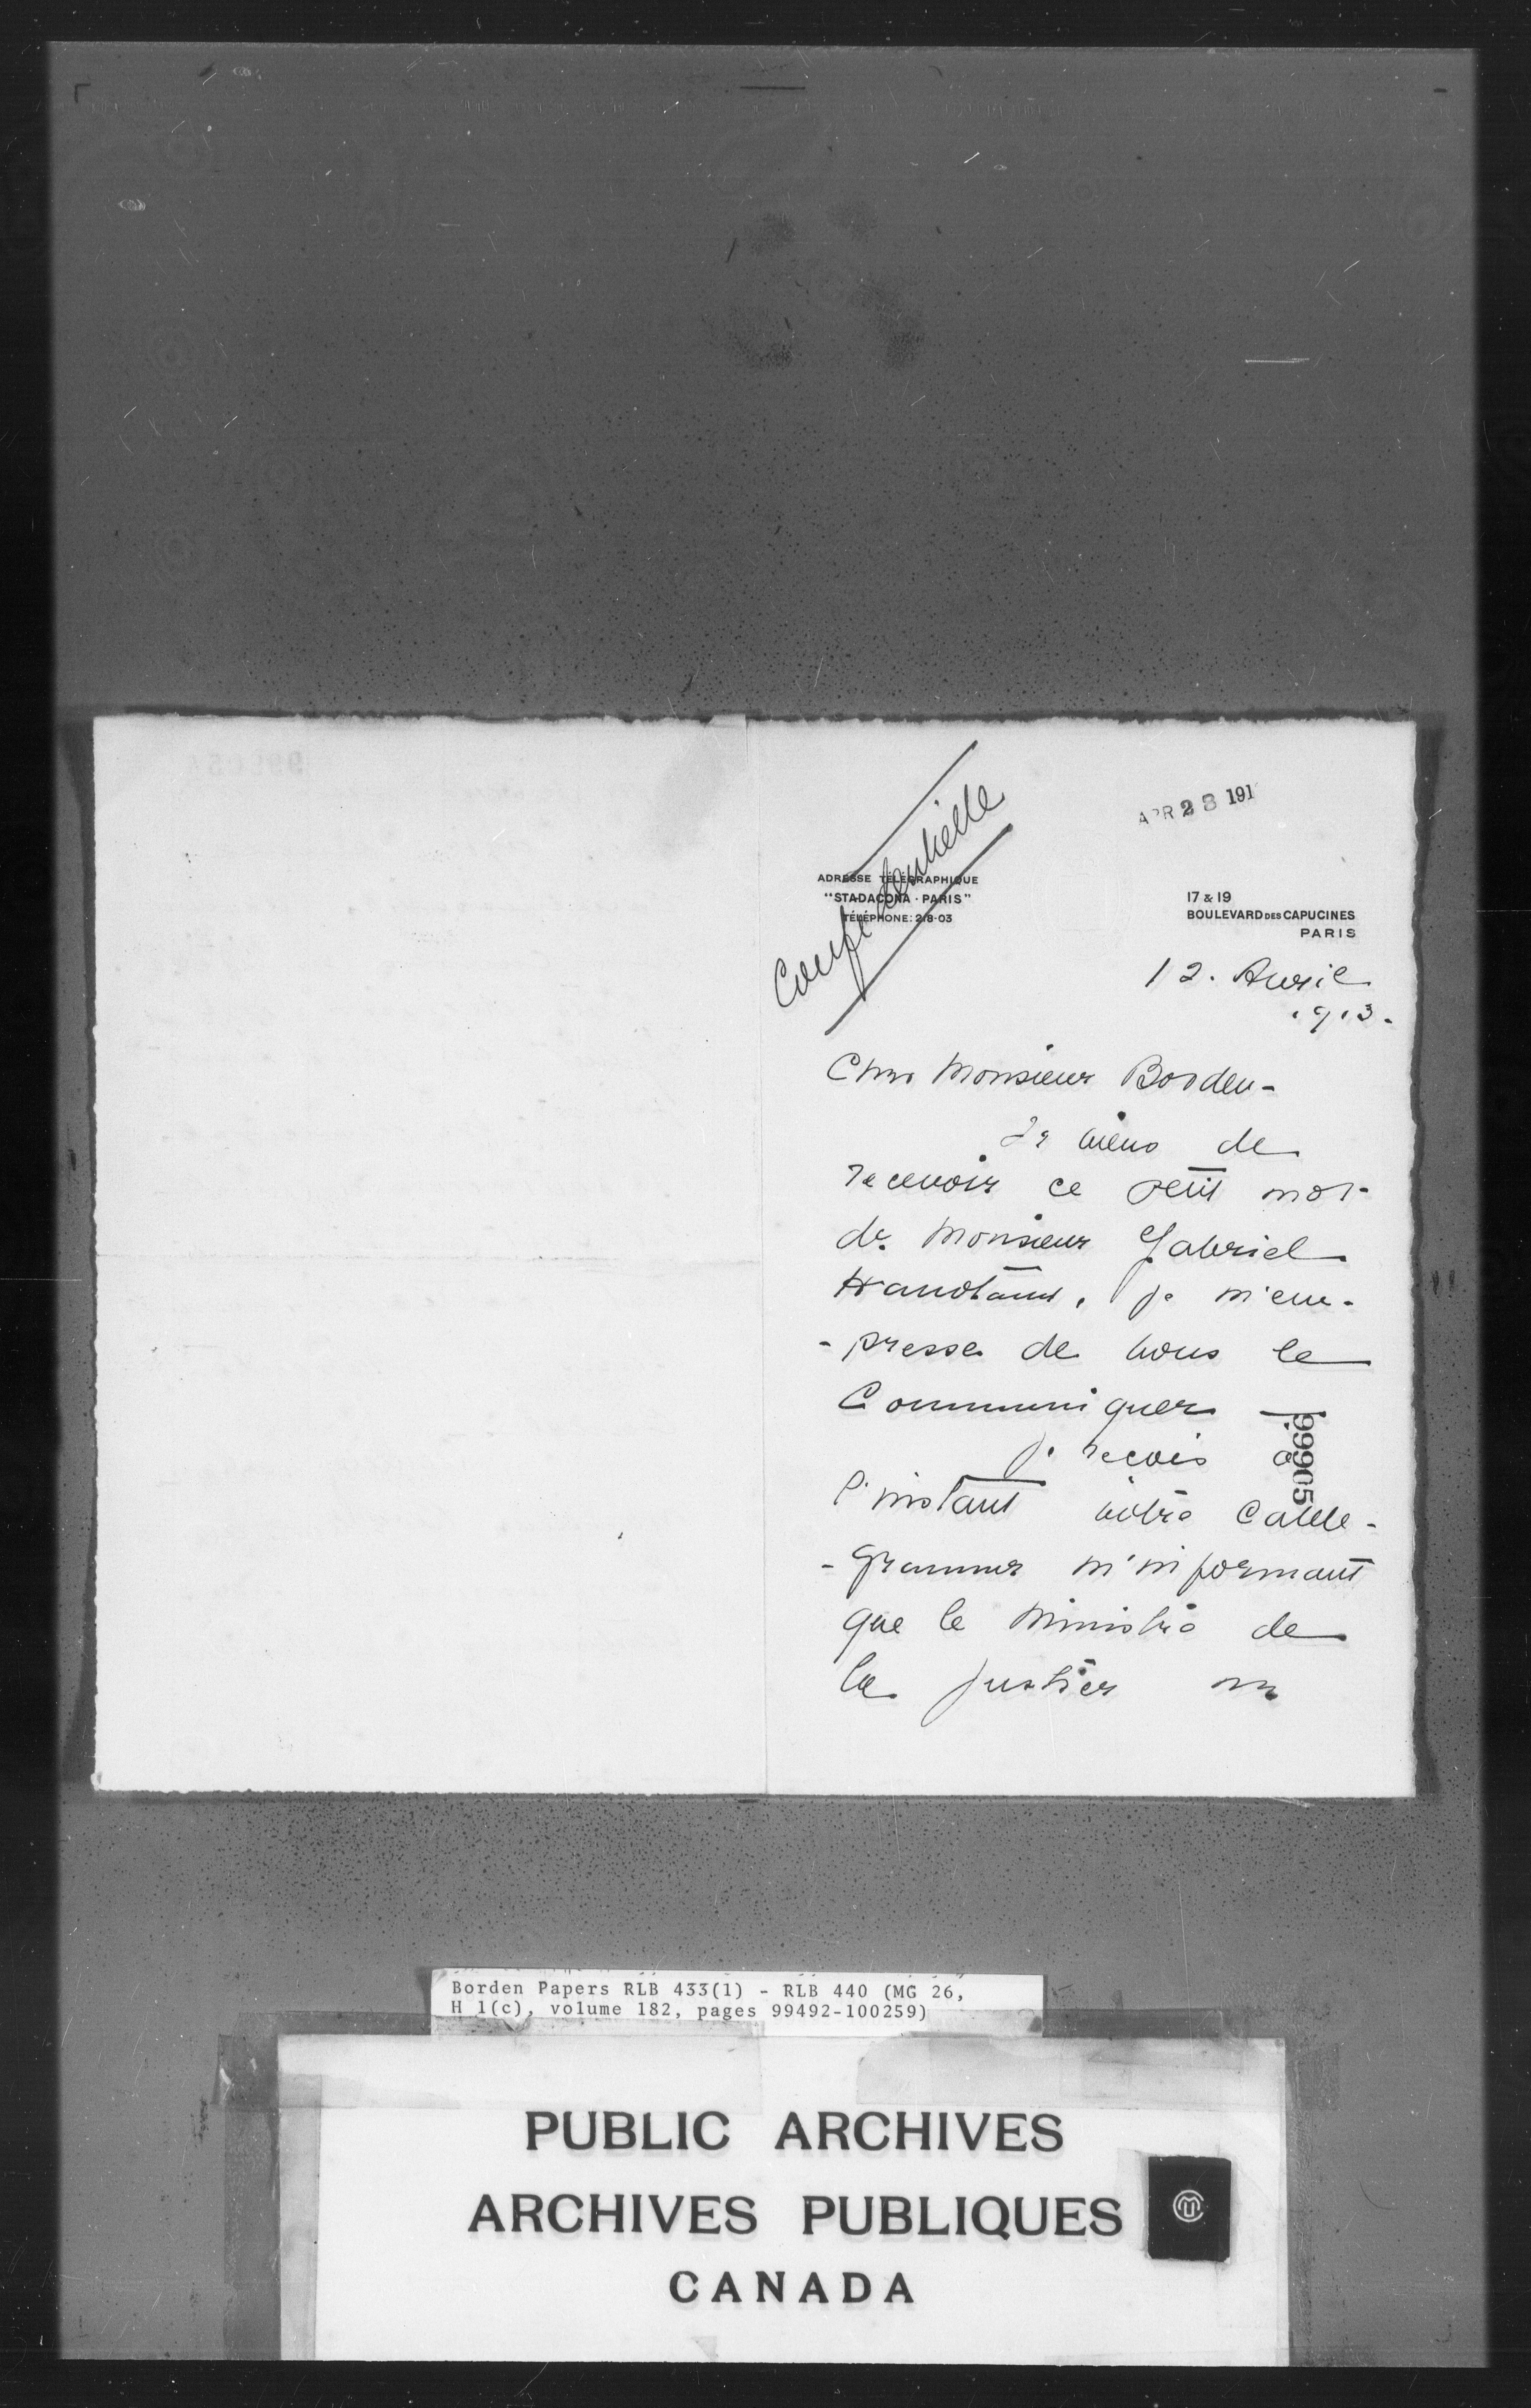 APR 28 191
Confidentielle
ADRESSE TÉLÉGRAPHIQUE
"STADACONA · PARIS"
TÉLÉPHONE: 218-03
17 & 19
BOULEVARD DES CAPUCINES
PARIS
12. Avril
1913.
Cher Monsieur Borden -
Je viens de
recevoir ce petit mot
de Monsieur Gabriel
Hanotaux, je m'em-
-presse de vous le
Communiquer —
je reçois à
l'instant votre Cable-
-gramme m'informant
que le Ministre de
la Justice
99905
Borden Papers RLB 433(1) - RLB 440 (MG 26,
H 1(c), volume 182, pages 99492-100259)
PUBLIC ARCHIVES
ARCHIVES PUBLIQUES
CANADA